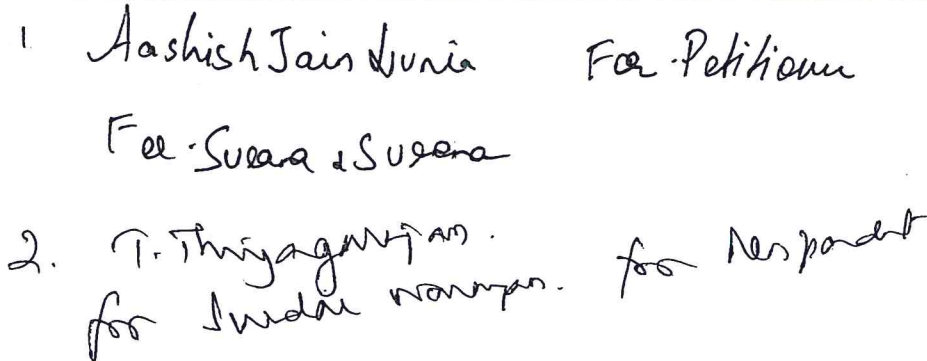 1 Aashish Jain Lunia For Petitioner
For Surana & Surana
2. T. Thiyagarajan. for Respondent
for Sundar Narayan.